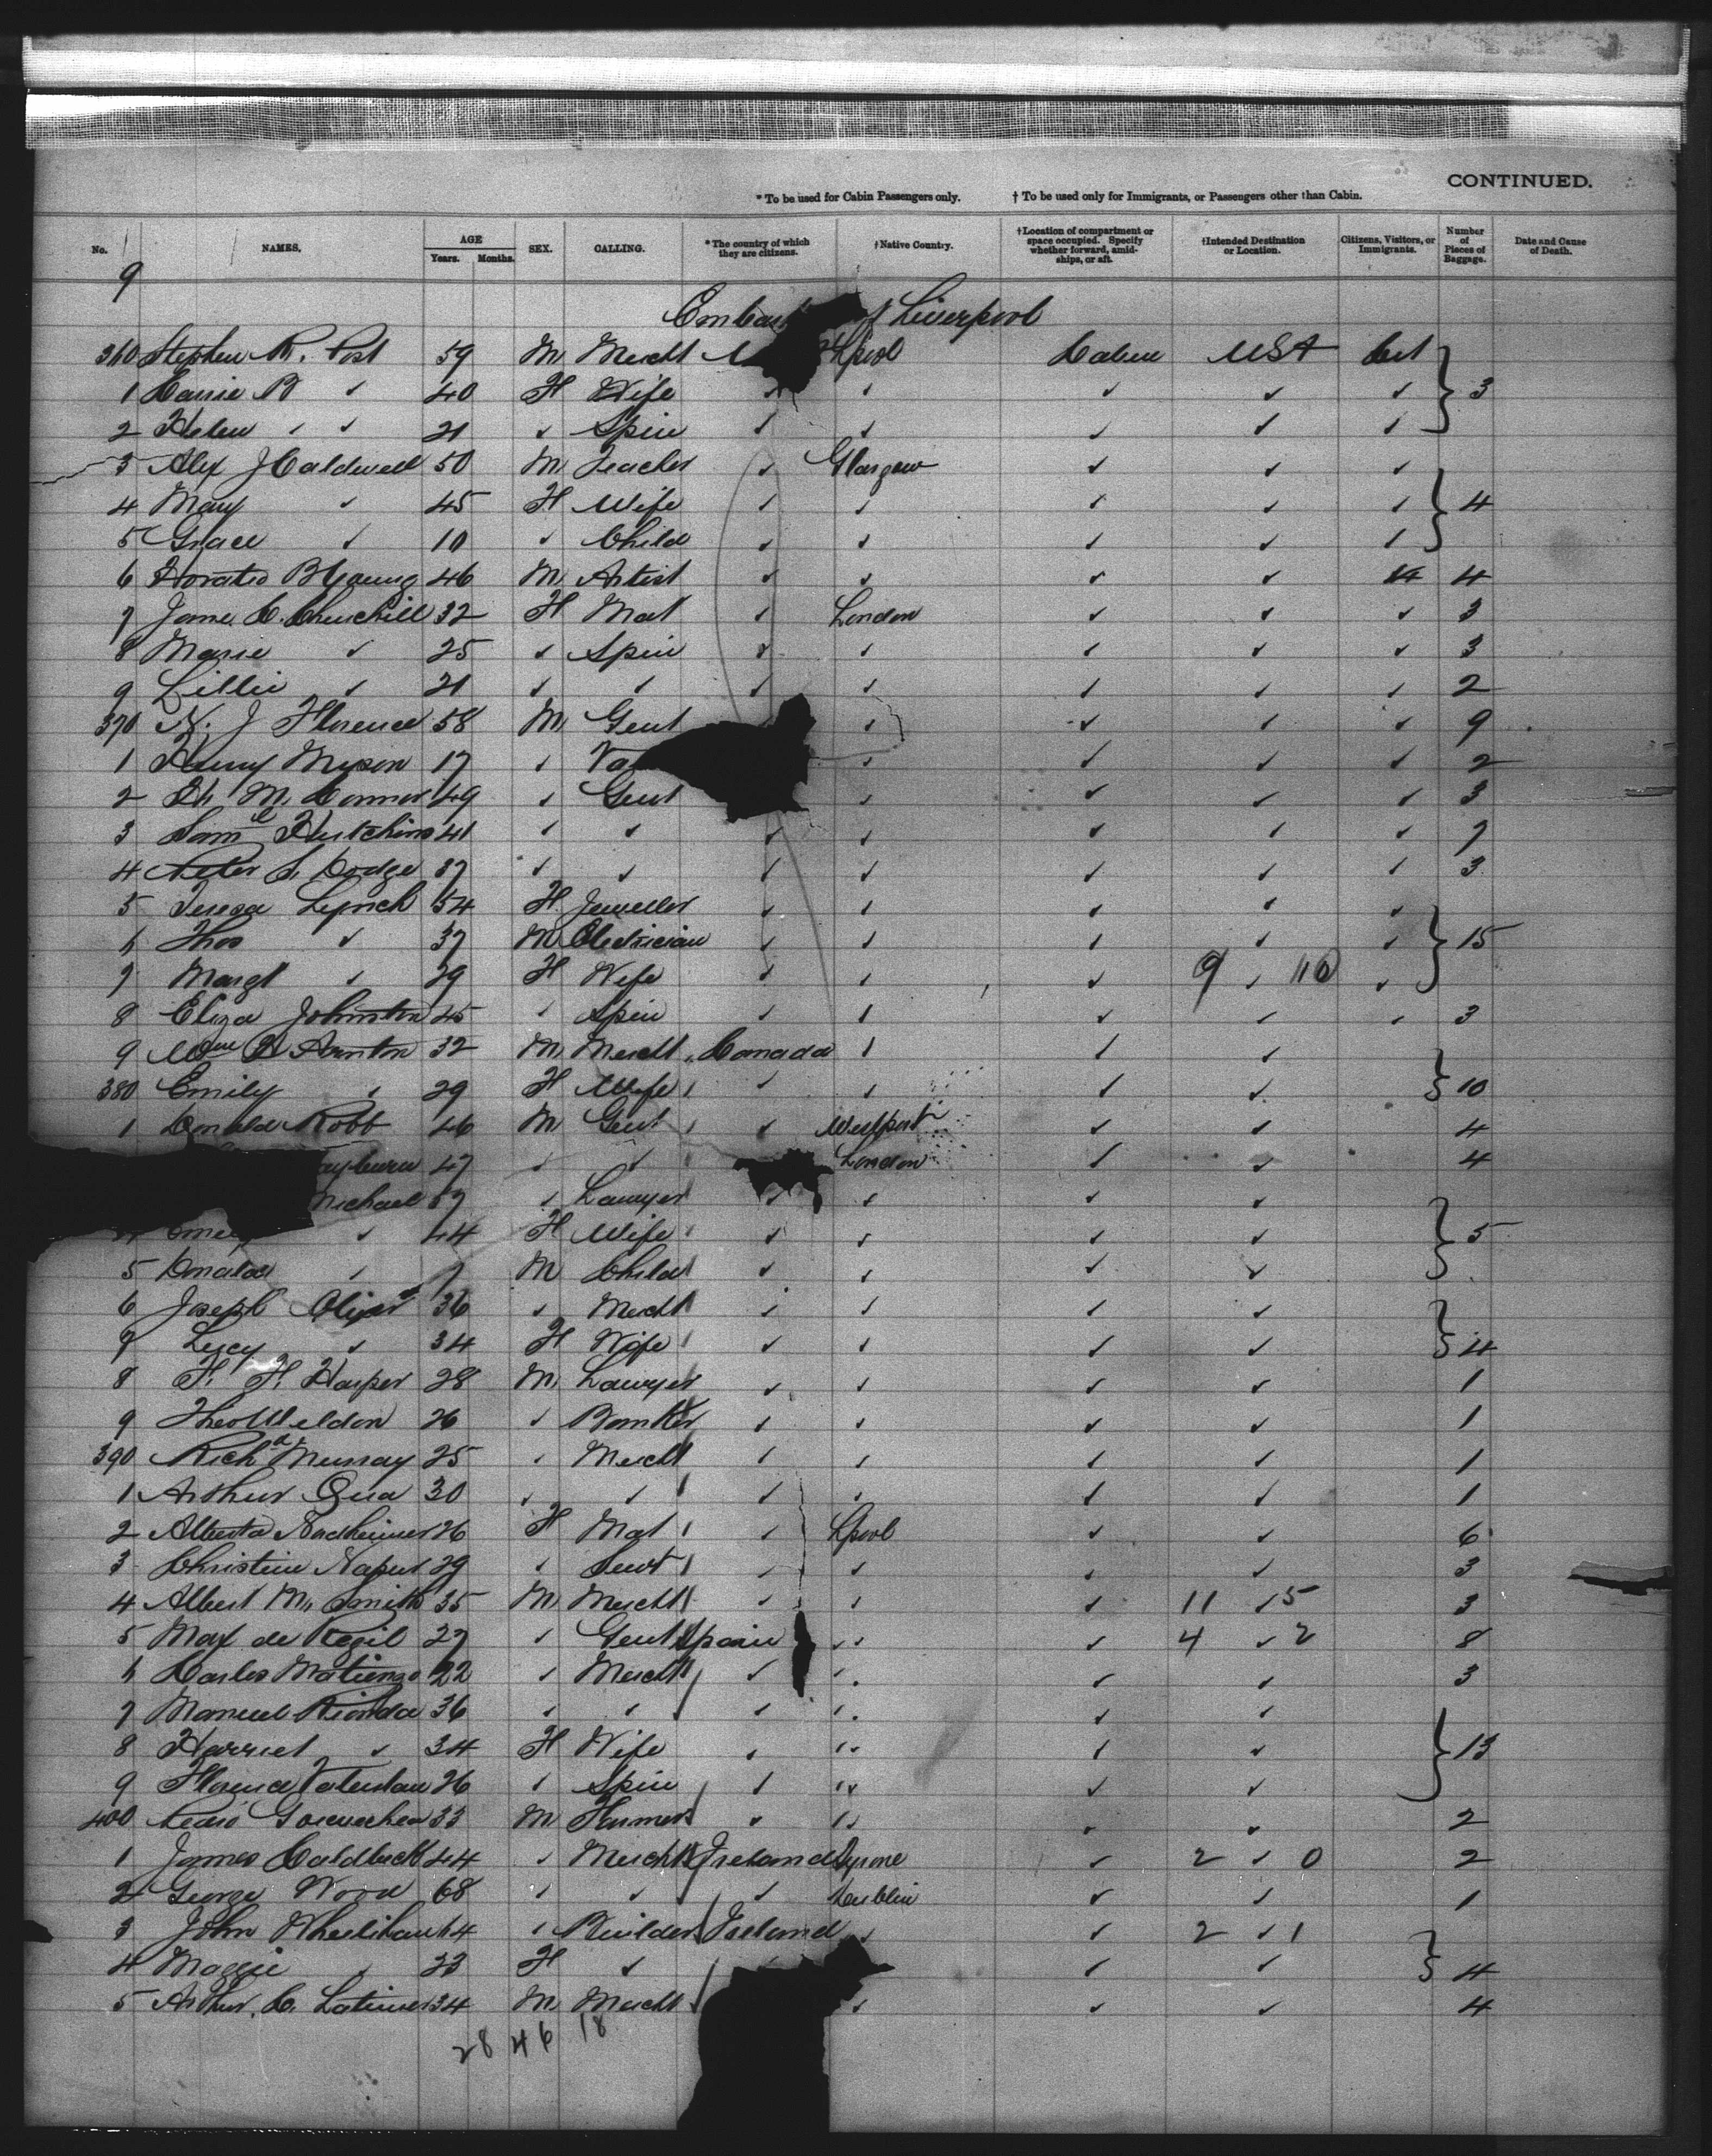 CONTINUED.
* To be used for Cabin Passengers only. † To be used only for Immigrants, or Passengers other than Cabin.
No. NAMES. AGE Years. Months. SEX. CALLING. *The country of which they are citizens. †Native Country. †Location of compartment or space occupied. Specify whether forward, amidships, or aft. †Intended Destination or Location. Citizens, Visitors, or Immigrants. Number of Pieces of Baggage. Date and Cause of Death.
9
Liverpool
360 Stephen R. Post 59 M Mercht Lpool Cabin USA Cit
1 Carrie B ✓ 40 F Wife ✓ ✓ ✓ ✓ ✓ } 3
2 Helen ✓ ✓ 21 ✓ Spin ✓ ✓ ✓ ✓ ✓
3 Alex J Caldwell 50 M Teacher ✓ Glasgow ✓ ✓ ✓
4 Mary ✓ 45 F Wife ✓ ✓ ✓ ✓ ✓ } 4
5 Grace ✓ 10 ✓ Child ✓ ✓ ✓ ✓ ✓
6 Horatio B Young 46 M Artist ✓ ✓ ✓ ✓ 4
7 Jane C. Churchill 32 F Mat ✓ London ✓ ✓ ✓ 3
8 Marie ✓ 25 ✓ Spin ✓ ✓ ✓ ✓ ✓ 3
9 Lillie ✓ 21 ✓ ✓ ✓ ✓ ✓ ✓ ✓ 2
370 J Florence 58 M Gent ✓ ✓ ✓ ✓ 9
1 Henry Myson 17 ✓ ✓ ✓ ✓ ✓ 2
2 M. Connor 49 ✓ Gent ✓ ✓ ✓ ✓ 3
3 Saml Hutchins 41 ✓ ✓ ✓ ✓ ✓ ✓ ✓ 7
4 Peter S. Dodge 37 ✓ ✓ ✓ ✓ ✓ ✓ ✓ 3
5 Teresa Lynch 54 F Jeweller ✓ ✓ ✓ ✓ ✓
6 Thos ✓ 37 M Electrician ✓ ✓ ✓ ✓ ✓ } 15
7 Margt ✓ 29 F Wife ✓ ✓ ✓ 9 ✓ 110 ✓
8 Eliza Johnston 45 ✓ Spin ✓ ✓ ✓ ✓ ✓ 3
9 Wm 32 M Mercht Canada ✓ ✓ ✓
380 Emily ✓ 29 F Wife ✓ ✓ ✓ ✓ } 10
1 Donald Robb 46 M Gent ✓ Westport ✓ ✓ 4
47 ✓ ✓ London ✓ ✓ 4
michael 57 ✓ Lawyer ✓ ✓ ✓ ✓
✓ 44 F Wife ✓ ✓ ✓ ✓ } 5
5 Donald ✓ 7 M Child ✓ ✓ ✓ ✓
6 Joseph Oliver 36 ✓ Mercht ✓ ✓ ✓ ✓
7 Lucy ✓ 34 F Wife ✓ ✓ ✓ ✓ } 4
8 F. F. Harper 28 M Lawyer ✓ ✓ ✓ ✓ 1
9 Theo Weldon 26 ✓ Banker ✓ ✓ ✓ ✓ 1
390 Richd Murray 25 ✓ Mercht ✓ ✓ ✓ ✓ 1
1 Arthur Qua 30 ✓ ✓ ✓ ✓ ✓ ✓ 1
2 Alberta Nordheimer 26 F Mat ✓ Lpool ✓ ✓ 6
3 Christine Napier 29 ✓ Servt ✓ ✓ ✓ ✓ 3
4 Albert M. Smith 35 M Mercht ✓ ✓ ✓ 11 ✓ 5 3
5 Max de Regil 27 ✓ Gent Spain ✓ ✓ 4 ✓ 2 8
6 Carlos Matienzo 22 ✓ Mercht ✓ ✓ ✓ ✓ 3
7 Manuel Rionda 36 ✓ ✓ ✓ ✓ ✓ ✓
8 Harriet ✓ 34 F Wife ✓ ✓ ✓ ✓ } 13
9 Florence 26 ✓ Spin ✓ ✓ ✓ ✓
400 Pedro 33 M Farmer ✓ ✓ ✓ ✓ 2
1 James Caldbeck 44 ✓ Mercht Ireland Tyrone ✓ 2 ✓ 0 2
2 George Wood 68 ✓ ✓ ✓ Dublin ✓ ✓ 1
3 John Wheelihan 64 ✓ Builder Ireland ✓ ✓ 2 ✓ 1
4 Maggie ✓ 23 F ✓ ✓ ✓ } 4
5 Arthur C. Latimer 34 M Mercht ✓ ✓ ✓ 4
28 46 18